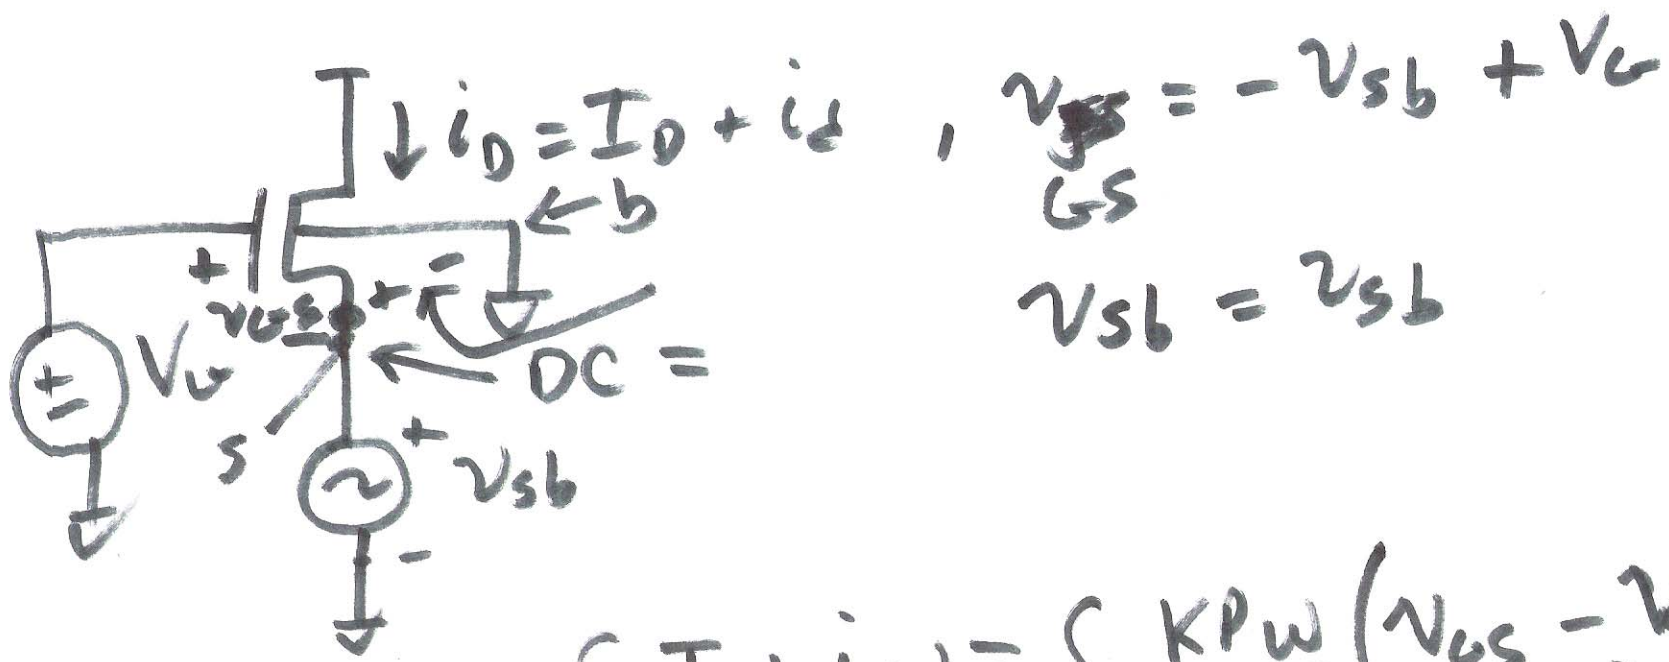 i_D = I_D + i_d , v_GS = - v_sb + V_G
← b
+ -
v_GS + -
v_sb = v_sb
+ - V_G
DC =
s
+
v_sb
-
( I i ) = ( KPW ( v_GS - v